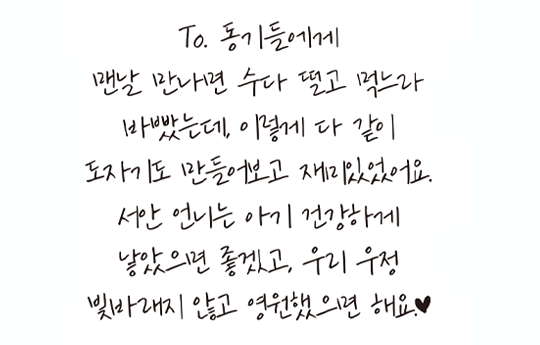 To. 동기들에게
맨날 만나면 수다 떨고 먹느라
바빴는데, 이렇게 다 같이
도자기도 만들어보고 재미있었어요.
서안 언니는 아기 건강하게
낳았으면 좋겠고, 우리 우정
빛바래지 않고 영원했으면 해요.♥